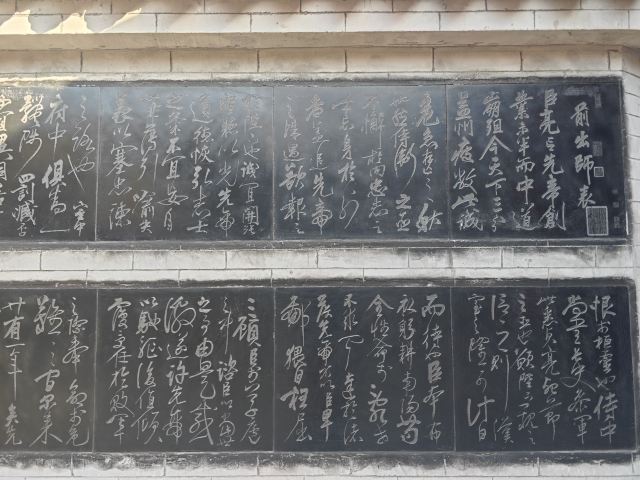 前出師表
臣亮言先帝創
業未半而中道
崩殂今天下三分
益州疲敝此誠
危急存亡之秋
也然侍衛之臣
不懈於內忠志之
士忘身於外
者蓋追先帝
之殊遇欲報之
於陛下也誠宜開張
聖聽以光先帝
遺德恢弘志士
之氣不宜妄自
菲薄引喻失
義以塞忠諫
之路也宮中
府中俱為一
體陟罰臧否
不宜異同若
恨於桓靈也侍中
尚書長史參軍
此悉貞亮死節
之臣也願陛下親之
信之則漢
室之隆可計日
而待也臣本布
衣躬耕南陽苟
全性命於亂世
不求聞達於諸
侯先帝不以臣卑
鄙猥自枉屈
三顧臣於草廬
之中諮臣以當世
之事由是感
激遂許先帝
以驅馳後值傾
覆受任於敗軍
之際奉命於危
難之間爾來
廿有一年矣先